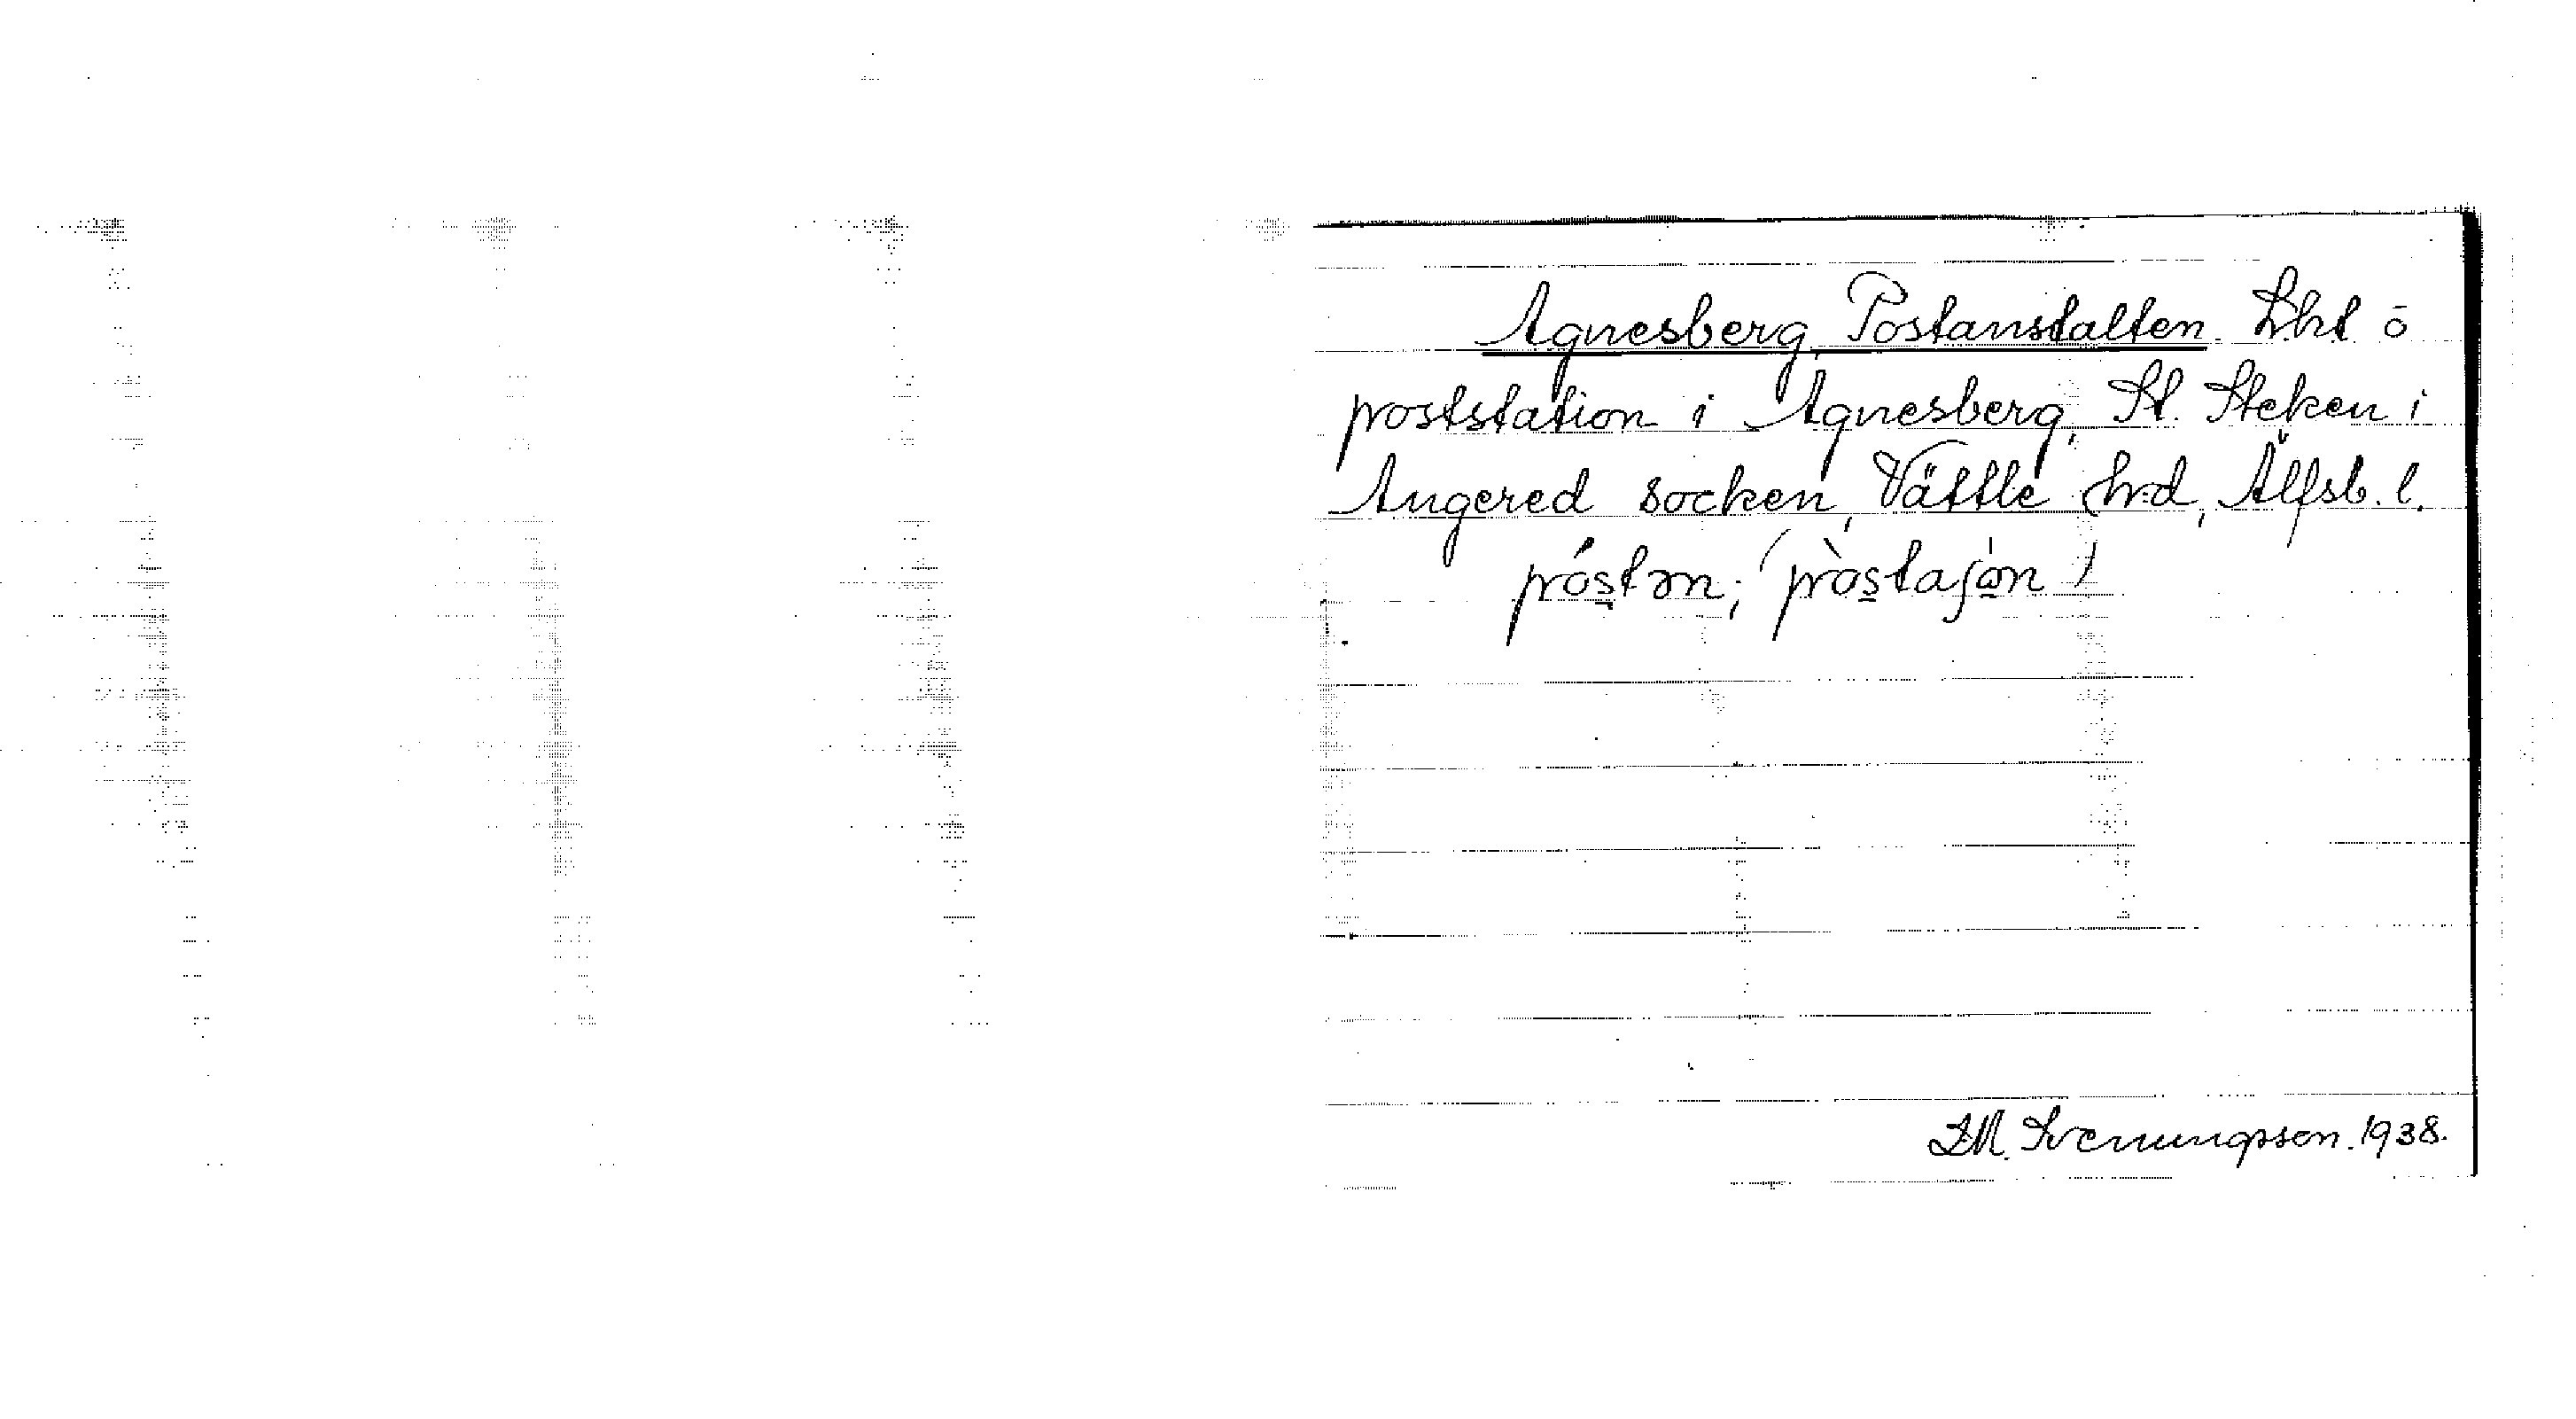 Agnesberg, Postanstalten. Lht ō
poststation i Agnesberg, St. Steken i
Angered socken, Vättle hrd, Älfsb. l.
póstən; (pòstaʃón)
I.M. Svenungsson. 1938.